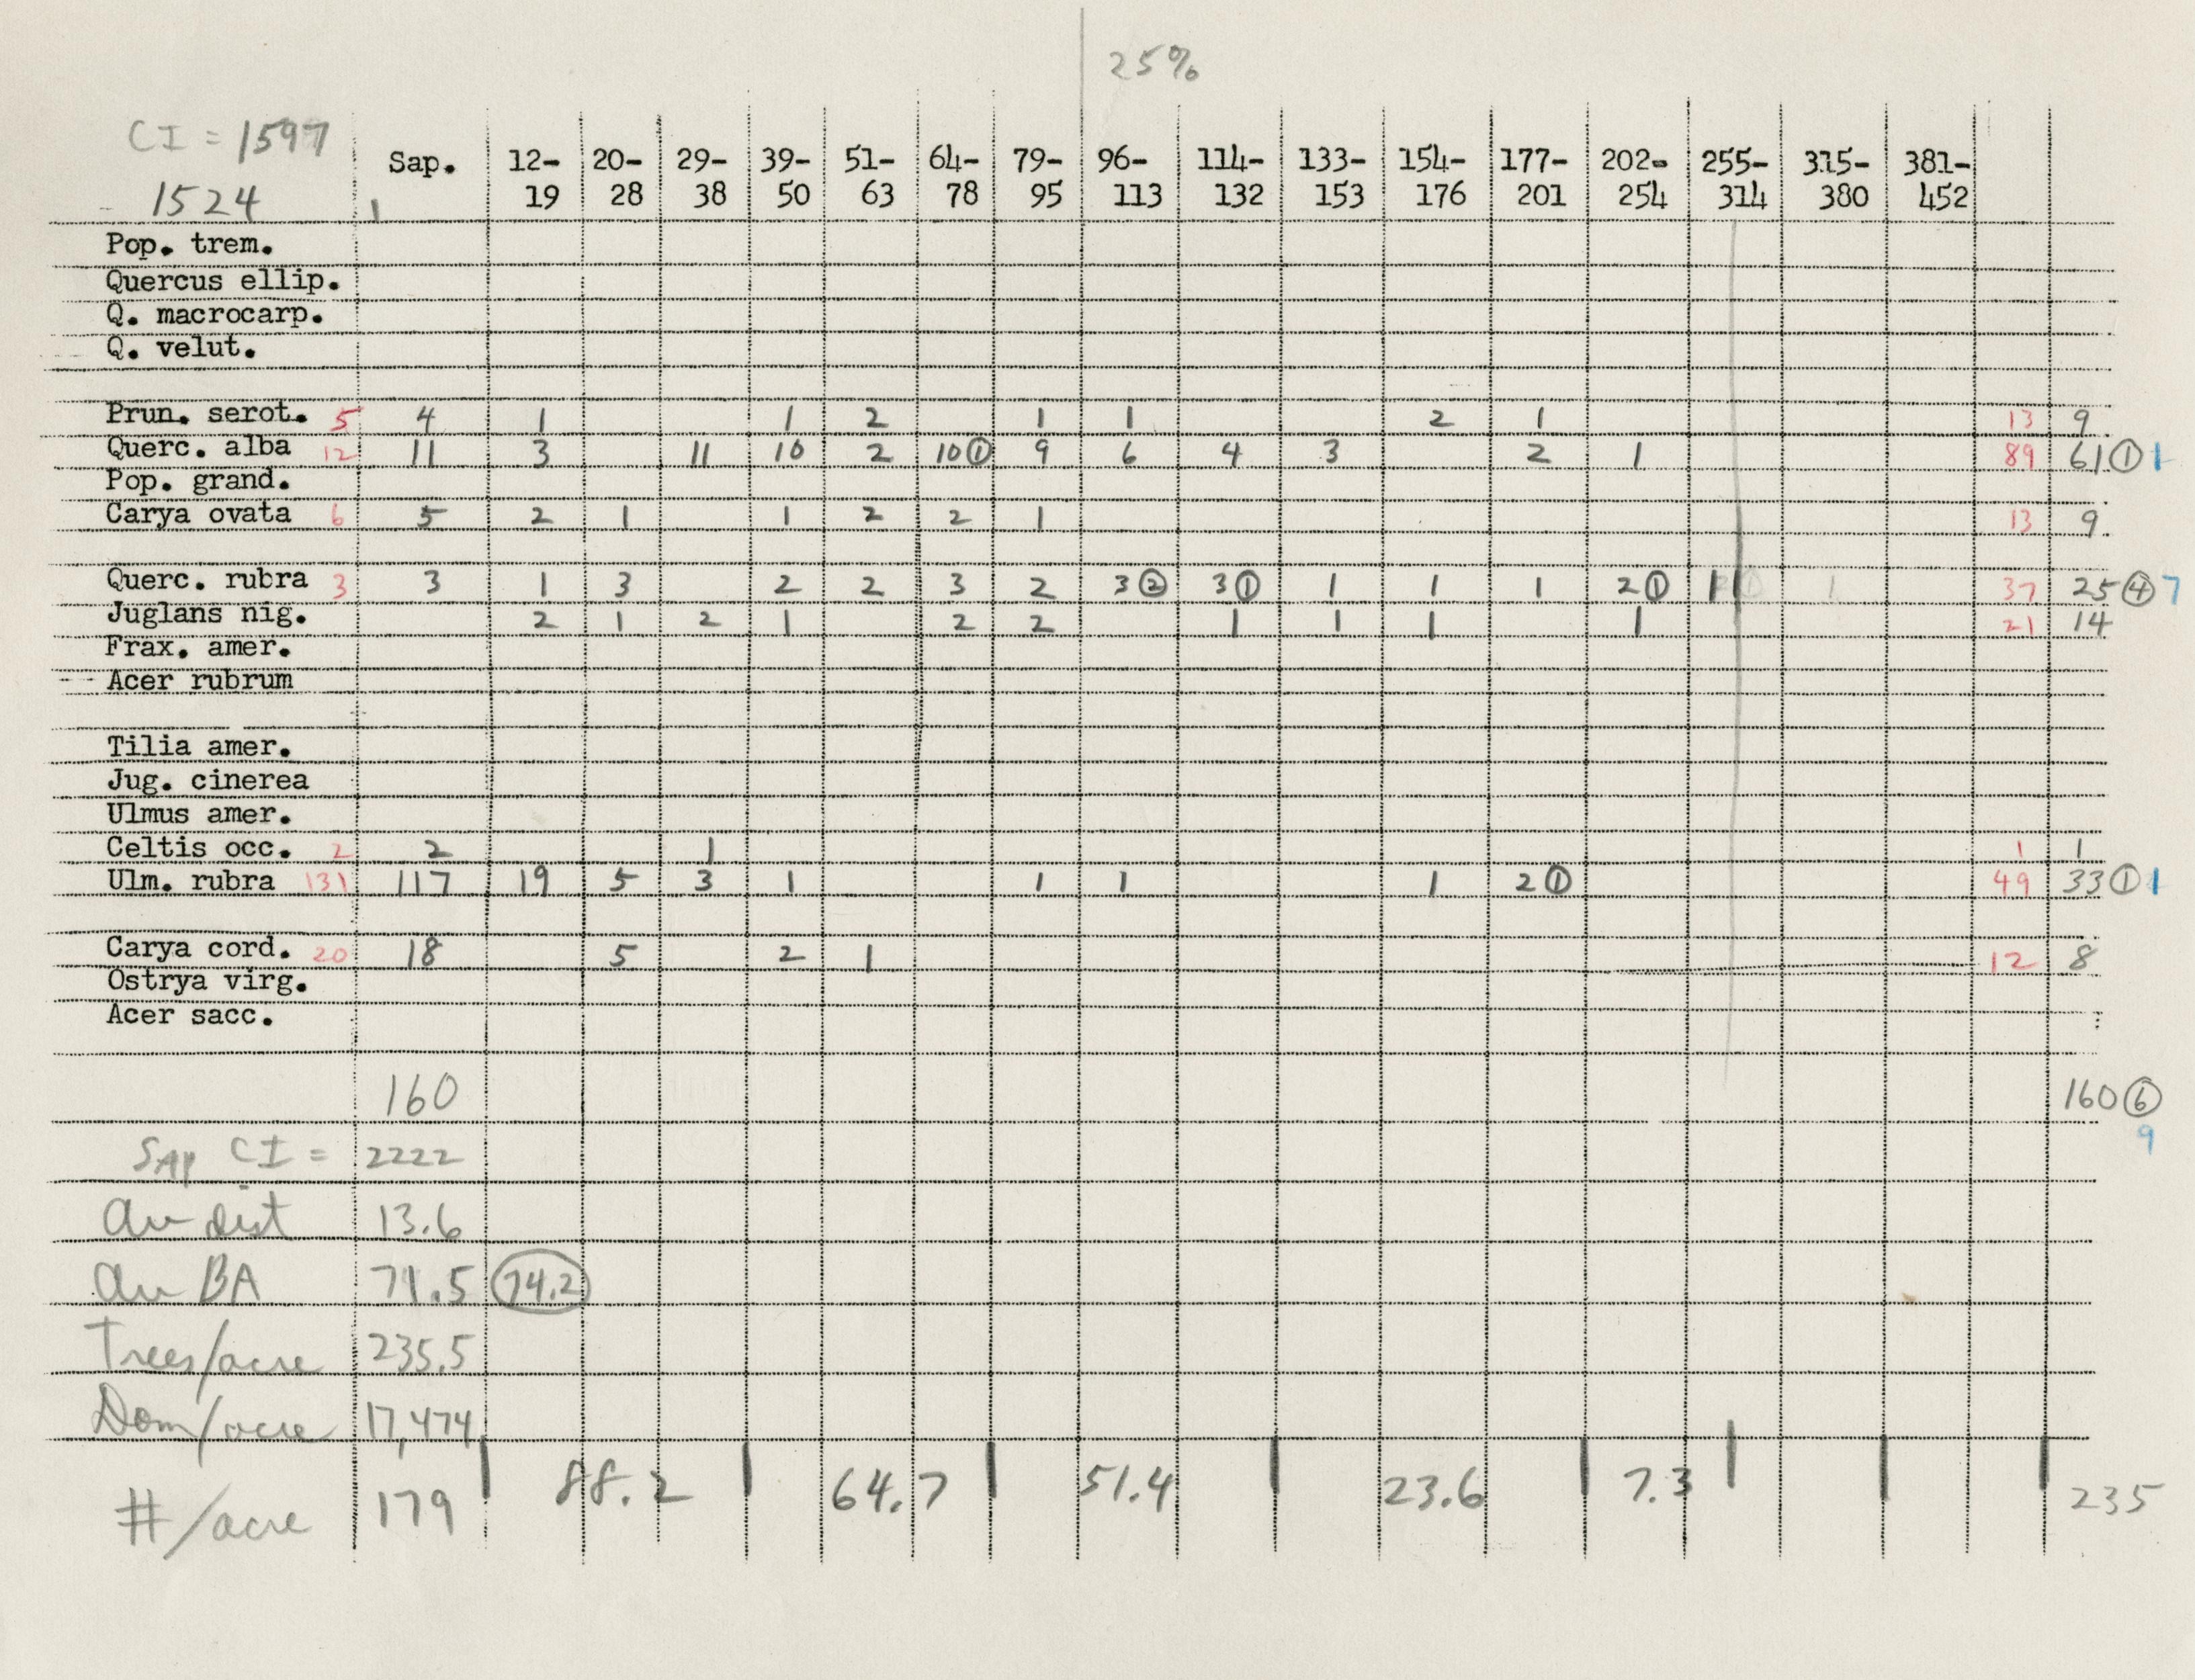 25%
CI = 1597
Sap. 12- 20- 29- 39- 51- 64- 79- 96- 114- 133- 154- 177- 202- 255- 315- 381-
1524 19 28 38 50 63 78 95 113 132 153 176 201 254 314 380 452
Pop. trem.
Quercus ellip.
Q. macrocarp.
Q. velut.
Prun. serot. 5 4 1 1 2 1 1 2 1 13 9
Querc. alba 12 11 3 11 10 2 10 ① 9 6 4 3 2 1 89 61 ① 1
Pop. grand.
Carya ovata 6 5 2 1 1 2 2 1 13 9.
Querc. rubra 3 3 1 3 2 2 3 2 3 ② 3 ① 1 1 1 2 ① 1 37 25 ④ 7
Juglans nig. 2 1 2 1 2 2 1 1 1 1 21 14
Frax. amer.
Acer rubrum
Tilia amer.
Jug. cinerea
Ulmus amer.
Celtis occ. 2 2 1 1 1
Ulm. rubra 131 117 19 5 3 1 1 1 1 2 ① 49 33 ① 1
Carya cord. 20 18 5 2 1 12 8
Ostrya virg.
Acer sacc.
160 160 ⑥
9
SAP CI = 2222
Av dist 13.6
Av BA 71.5 74.2
Trees/acre 235.5
Dom/acre 17,474
#/acre 179 88.2 64.7 51.4 23.6 7.3 235